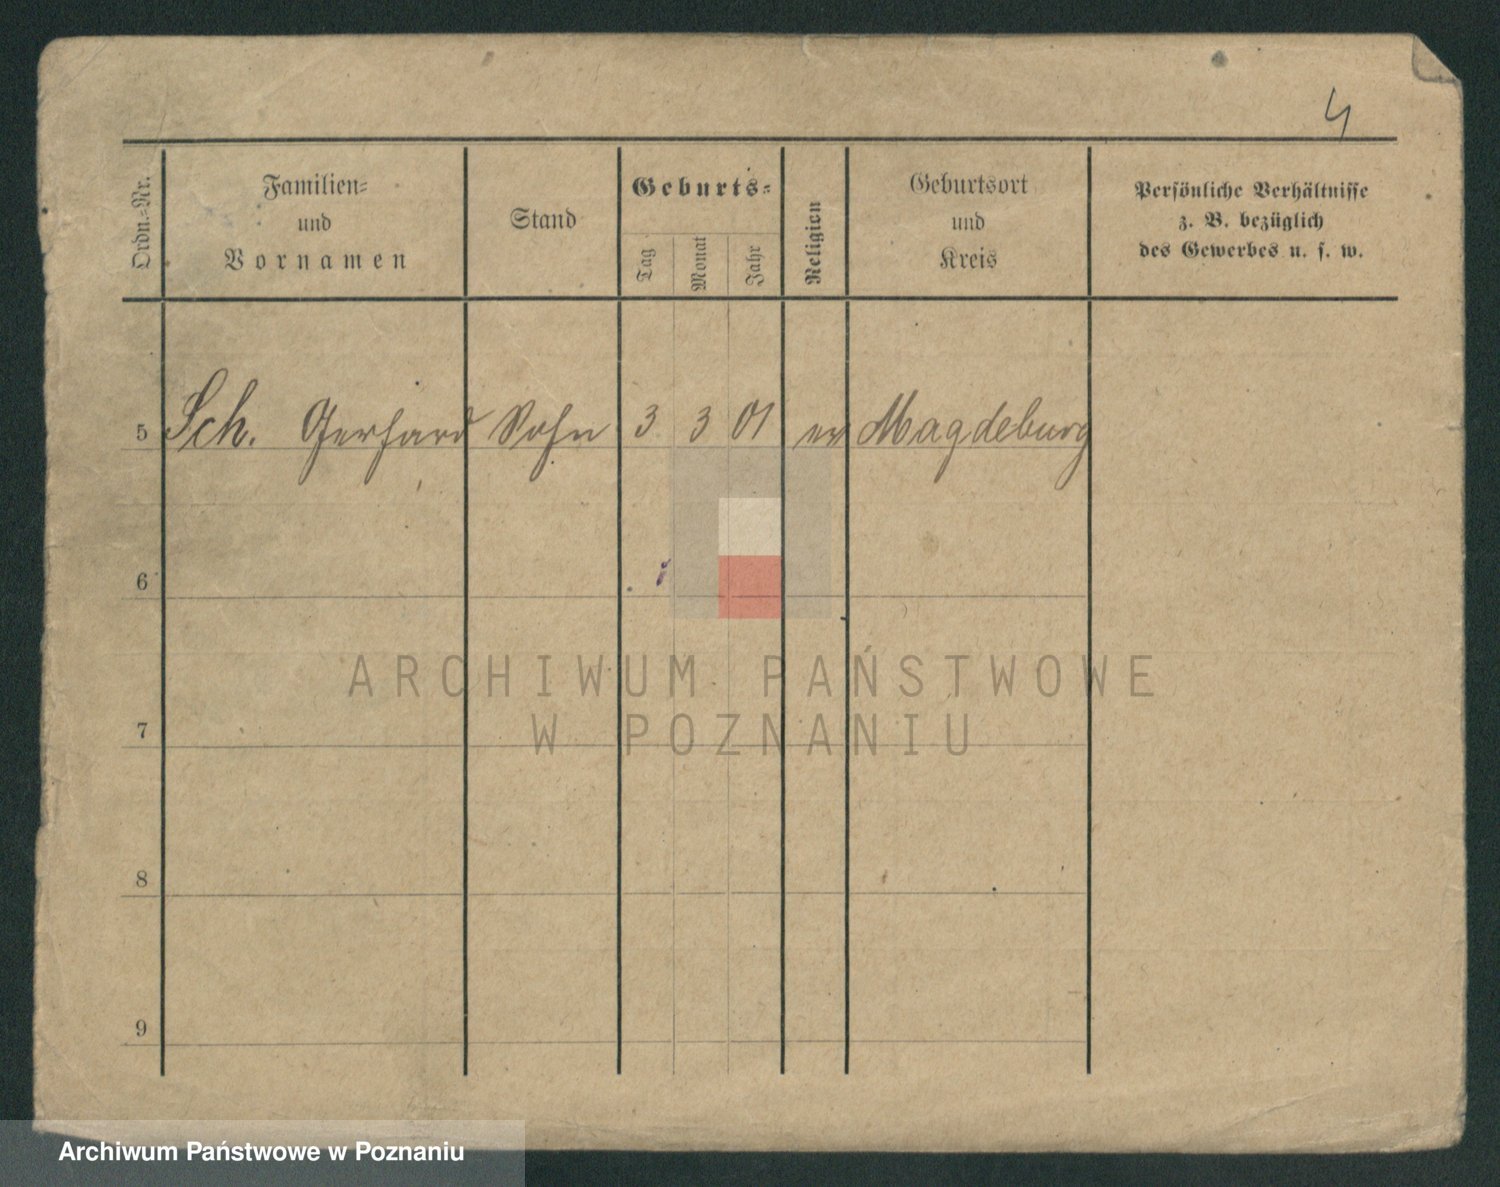 4
Ordn.-Nr.
Familien-
und
Vornamen
Stand
Geburts-
Tag
Monat
Jahr
Religion
Geburtsort
und
Kreis
Persönliche Verhältnisse
z. B. bezüglich
des Gewerbes u. s. w.
5 Sch. Gerhard Sohn 3 3 01 ev Magdeburg
6
7
8
9
ARCHIWUM PAŃSTWOWE
W POZNANIU
Archiwum Państwowe w Poznaniu